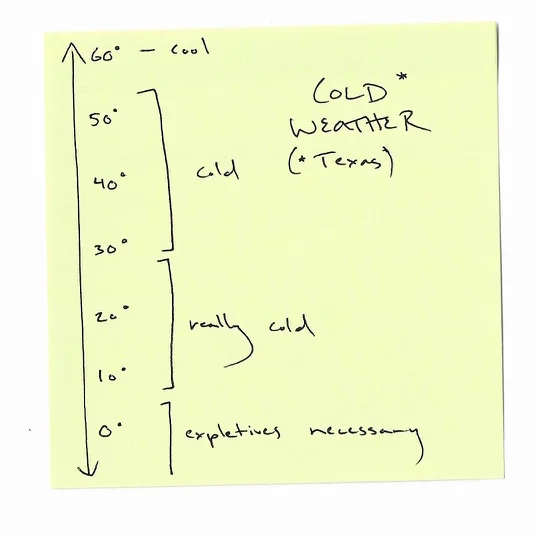 60° — cool
COLD*
WEATHER
(*Texas)
50°
40°
cold
30°
20°
really cold
10°
0°
expletives necessary